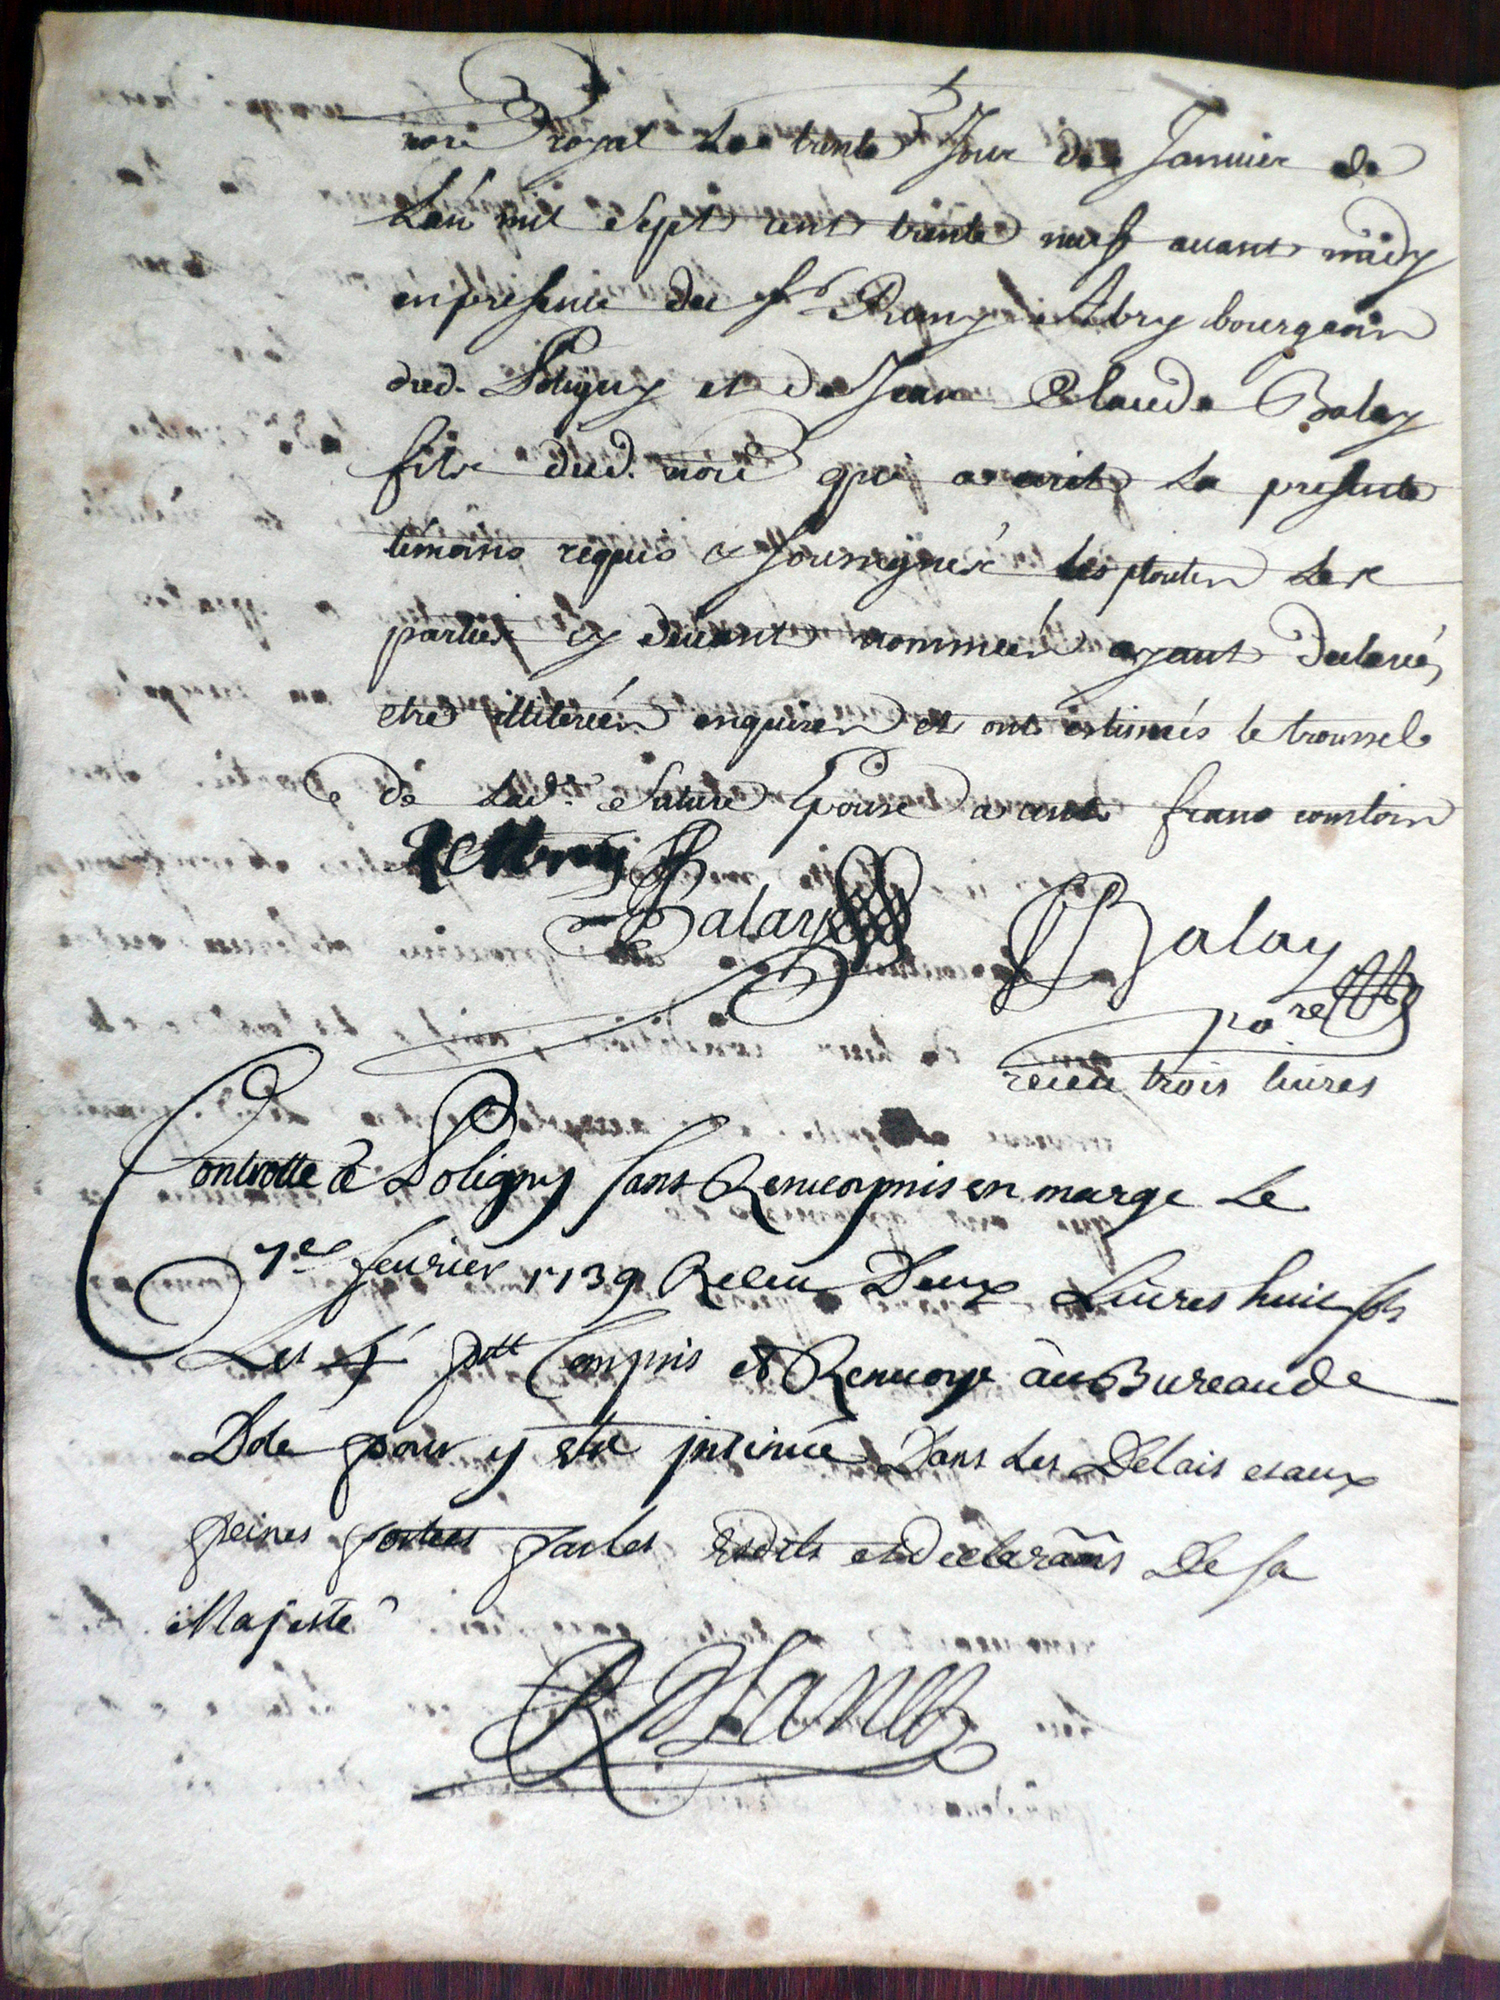 nore Royal Le trente Jour de Janvier de
L'an mil sept cent trente neuf avant midy
en presence du Sr Remy Abry bourgeois
dud. Poligny et de Jean Claude Balay
fils dud. nore qui a ecrit La presente
témoins requis & soussignés les
parties cy devant nommeés ayant declarés
etre illitereés enquises et ont estimés le troussel
de lad.te future Epouse a cent franc comtois
R Abry Balay Balay
nore
receu trois livres
Controllé à Poligny sans Renvoy mis en marge Le
7e fevrier 1739 Receu Deux Livres huit sols
Les 4 s pr tt Compris et Renvoyé au Bureau de
Dole pour y etre insinué Dans Les Delais et aux
peines portées par les Esdits et declaraõns De sa
Majesté